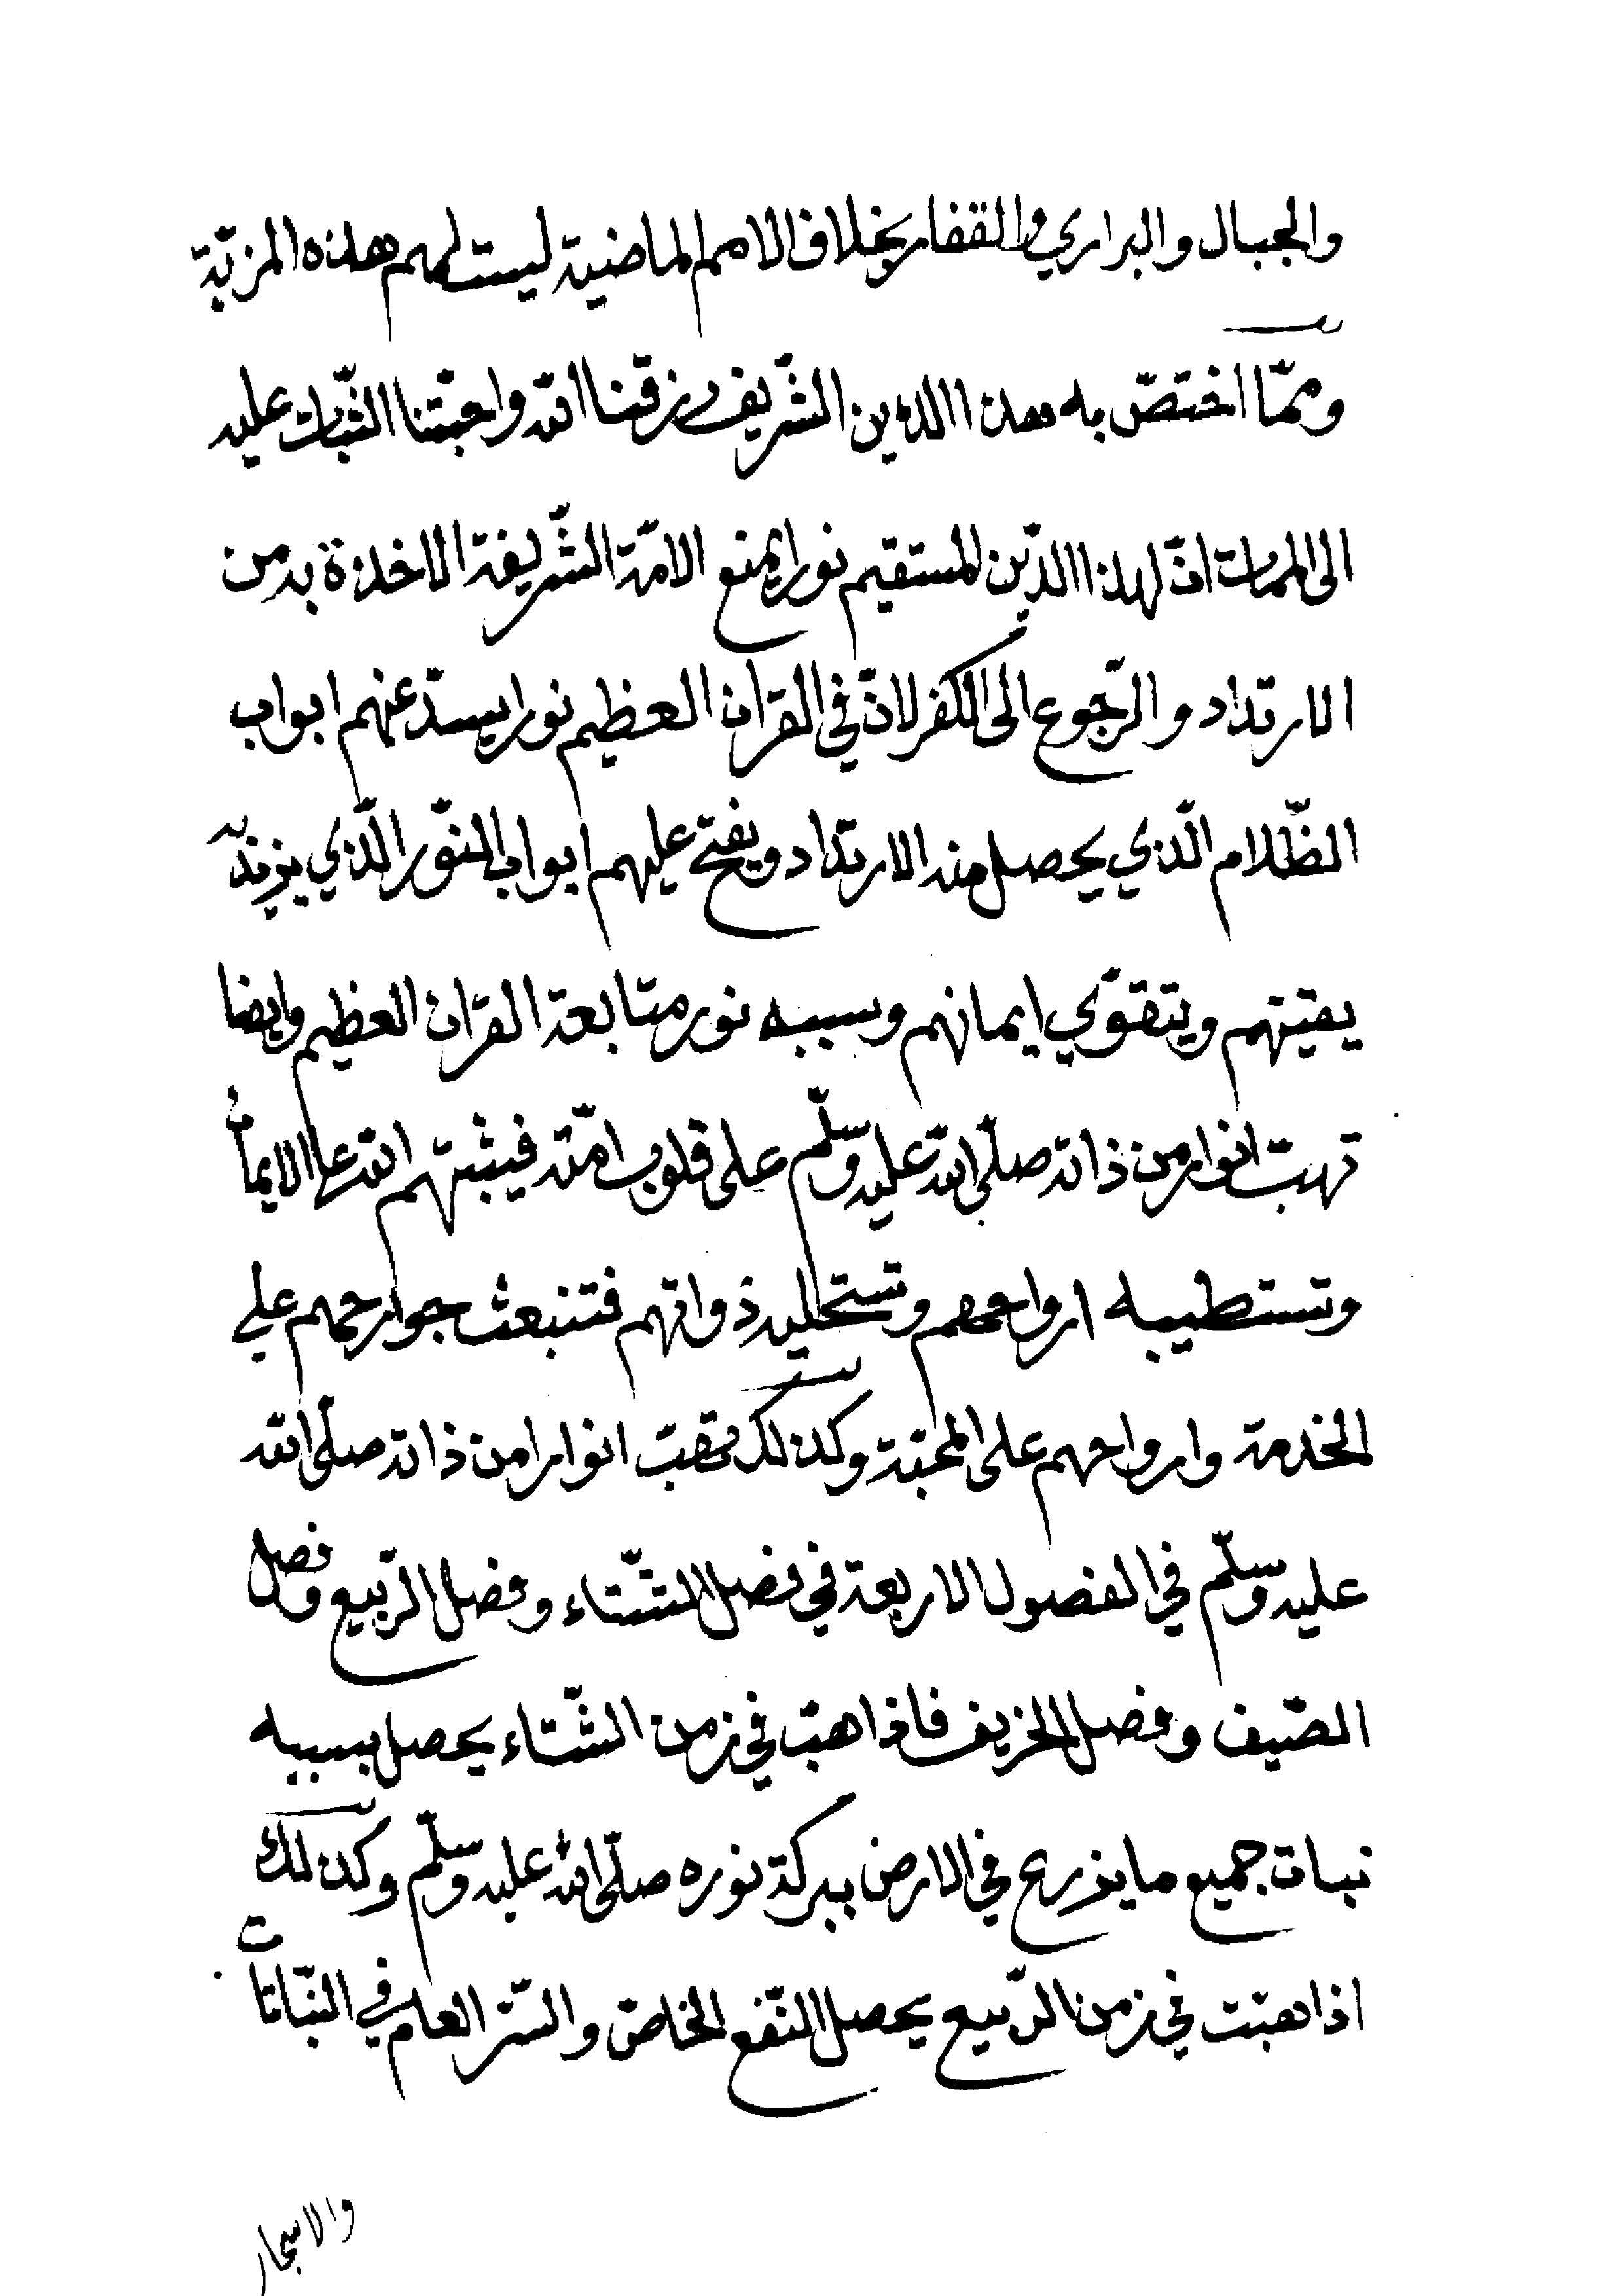 والجبال والبراري والقفار بخلاف الامم الماضية ليست لهم هذه المزيّة
وممّا اختصّ به هذا الدين الشّريف رزقنا الله واحبّتنا الثّبات عليه
الى الممات انّ لهذا الدّين المستقيم نورا يمنع الامّة الشّريفة الاخذة به من
الارتداد والرّجوع الى الكفر لانّ في القران العظيم نورا يسدّ عنهم ابواب
الظّلام الّذي يحصل منه الارتداد ويفتح عليهم ابواب النّور الّذي يزيد به
يقينهم ويتقوّي ايمانهم وسببه نور متابعة القران العظيم وايضا
تهبّ انوار من ذاته صلّى الله عليه وسلّم على قلوب امّته فيثبتهم الله على الايمان
وتستطيبه ارواحهم وتستحليه ذواتهم فتنبعث جوارحهم علي
الخدمة وارواحهم على المحبّة وكذلك تهبّ انوارا من ذاته صلّى الله
عليه وسلّم في الفصول الاربعة في فصل الشّتاء وفصل الرّبيع وفصل
الصّيف وفصل الخريف فاذا هبّت في زمن الشّتاء يحصل بسببه
نبات جميع ما يزرع في الارض ببركة نوره صلّى الله عليه وسلّم وكذلك
اذا هبّت في زمن الرّبيع يحصل النّفع الخاصّ والسّرّ العام في النّباتات
والاشجار